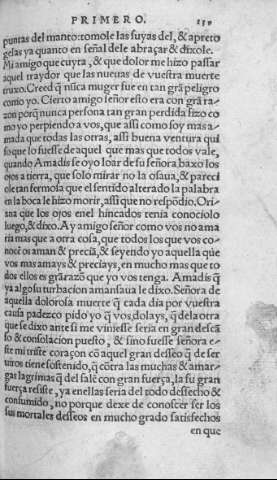 PRIMERO.
puntas del manto: tomole las suyas del, & apreto
gelas ya quanto en señal dele abraçar & dixole.
Mi amigo que cuyta, & que dolor me hizo passar
aquel traydor que las nueuas de vuestra muerte
truxo. Creed q̃ nũca muger fue en tan grã peligro
como yo. Cierto amigo señor esto era con grã ra-
zon porq̃ nunca persona tan gran perdida hizo co
mo yo perpiendo a vos, que assi como soy mas a-
mada que todas las otras, assi buena ventura qui
so que lo fuesse de aquel que mas que todos vale,
quando Amadis se oyo loar de su señora baxo los
ojos a tierra, que solo mirar no la osaua, & pareci
ole tan fermosa que el sentido alterado la palabra
en la boca le hizo morir, assi que no respõdio. Ori-
ana que los ojos enel hincados tenia conociolo
luego, & dixo. Ay amigo señor como vos no ama
ria mas que a otra cosa, que todos los que vos co-
nocẽ os aman & preciã, & seyendo yo aquella que
vos mas amays & preciays, en mucho mas que to
dos ellos es grã razõ que yo vos tenga. Amadis q̃
ya algo su turbacion amansaua le dixo. Señora de
aquella dolorosa muerte q̃ cada dia por vuestra
causa padezco pido yo q̃ vos dolays, q̃ dela otra
que se dixo ante si me viniesse seria en gran descã
so & consolacion puesto, & sino fuesse señora e-
ste mi triste coraçon cõ aquel gran desseo q̃ de ser
uiros tiene sostenido, q̃ cõtra las muchas & amar-
gas lagrimas q̃ del salẽ con gran fuerça, la su gran
fuerça resiste, ya enellas seria del todo desfecho &
consumido, no porque dexe de conoscer ser los
sus mortales desseos en mucho grado satisfechos
en que